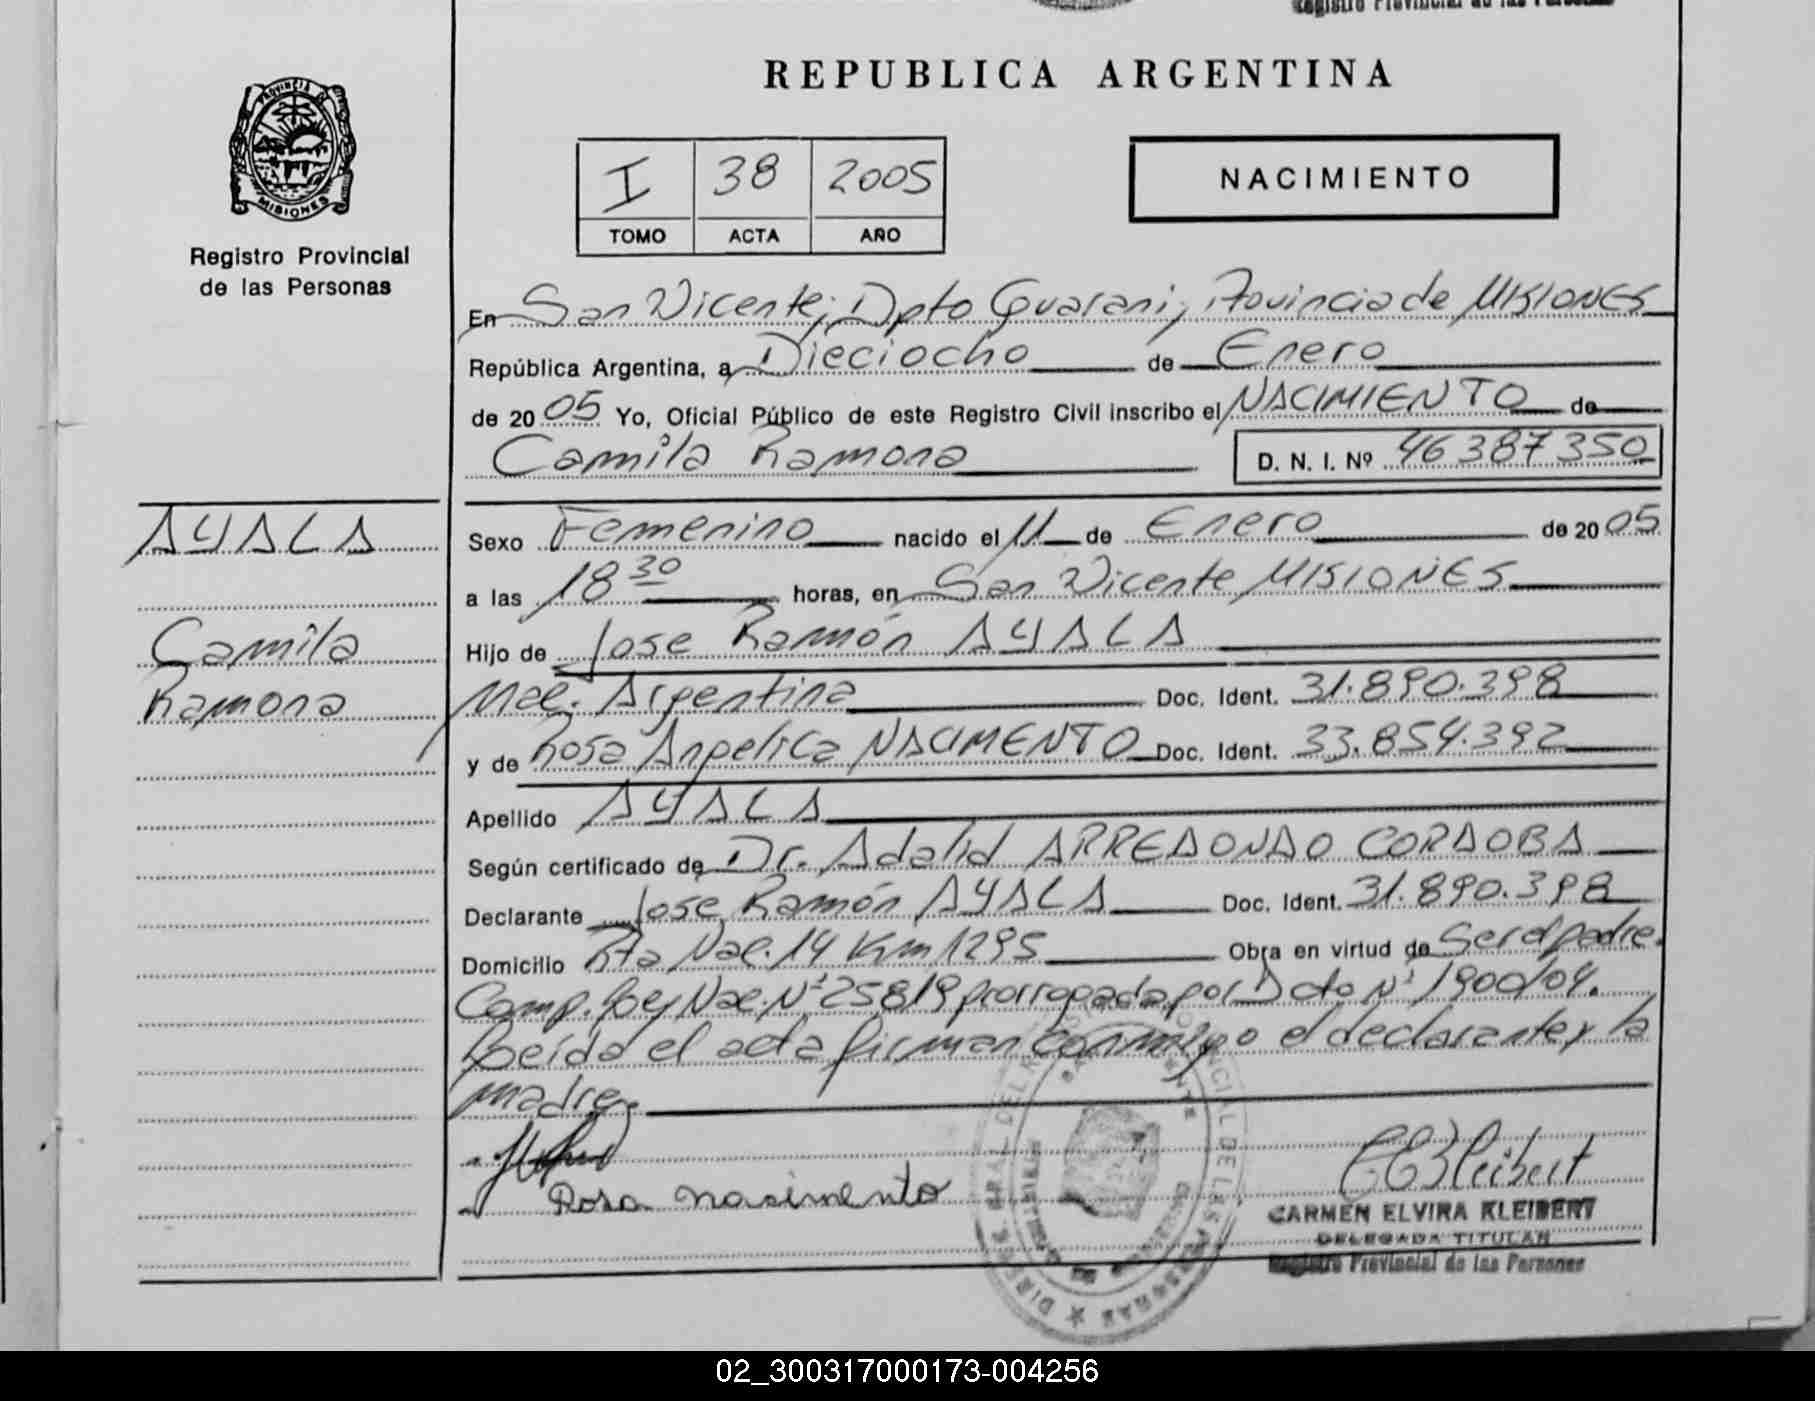 Registro Provincial de las Personas
REPUBLICA ARGENTINA
PROVINCIA DE
MISIONES
Registro Provincial
de las Personas
I 38 2005
TOMO ACTA AÑO
NACIMIENTO
En San Vicente; Dpto Guarani; Provincia de MISIONES
República Argentina, a Dieciocho de Enero
de 20 05 Yo, Oficial Público de este Registro Civil inscribo el NACIMIENTO de
Camila Ramona D. N. I. Nº 46387350
AYALA
Camila
Ramona
Sexo Femenino nacido el 11 de Enero de 20 05
a las 18 30 horas, en San Vicente MISIONES
Hijo de Jose Ramón AYALA
Nac. Argentina Doc. Ident. 31.890.398
y de Rosa Angelica NACIMENTO Doc. Ident. 33.854.392
Apellido AYALA
Según certificado de Dr. Adalid ARREDONDO CORDOBA
Declarante Jose Ramón AYALA Doc. Ident. 31.890.398
Domicilio Rta Nac. 14 Km 1295 Obra en virtud de Ser el padre.
Comp. Ley Nac. Nº 25819 prorrogada por Dcto Nº 1900/04.
Leída el acta firman conmigo el declarante y la
madre.
Rosa nacimento
CARMEN ELVIRA KLEIBERT
DELEGADA TITULAR
Registro Provincial de las Personas
02_300317000173-004256